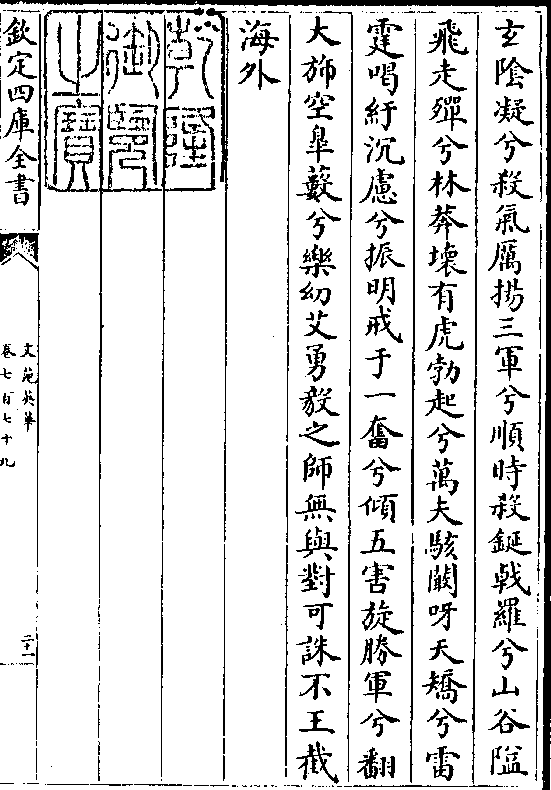 玄陰凝兮殺氣厲揚三軍兮順時殺鋋戟羅兮山谷隘
飛走殫兮林莽壞有虎勃起兮萬夫駭闞呀天矯兮雷
霆喝紆沉慮兮振明戒于一奮兮傾五害旋勝軍兮翻
大斾空皐藪兮樂幼艾勇毅之師無與對可誅不王截
海外
乾隆
御覽
之寶
欽定四庫全書
文苑英華
卷七百七十九
二十一